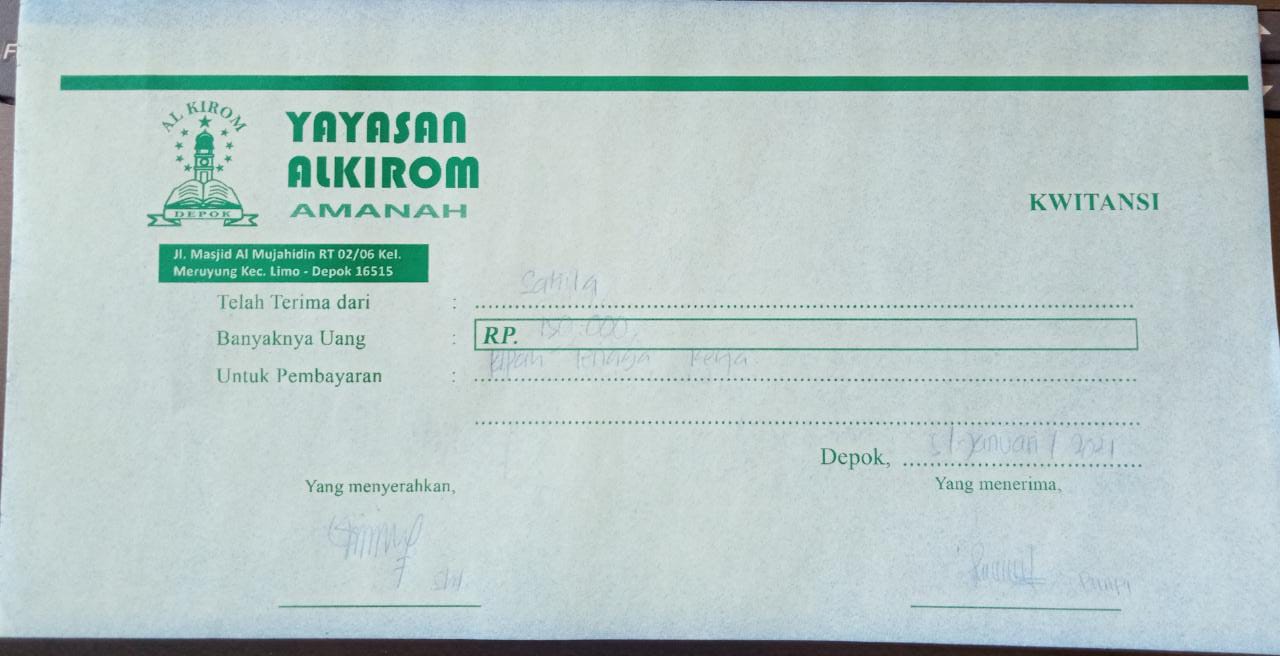 AL KIROM
DEPOK
YAYASAN
ALKIROM
AMANAH
KWITANSI
Jl. Masjid Al Mujahidin RT 02/06 Kel.
Meruyung Kec. Limo - Depok 16515
Telah Terima dari : Sahila
Banyaknya Uang : RP. 150.000,
Untuk Pembayaran : Tenaga Kerja.
Depok, Januari / 2021
Yang menyerahkan,
Yang menerima,